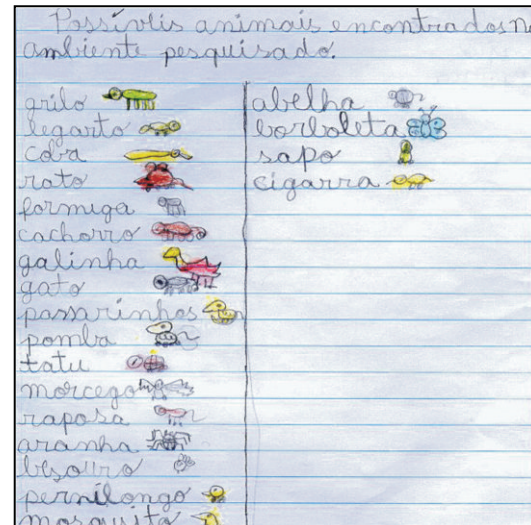 Possívlis animais encontrados n
ambiente pesquisado.
grilo
legarto
coba
rato
formiga
cachorro
galinha
gato
passarinhos
pomba
tatu
morcego
raposa
aranha
besouro
pernilongo
mosquito
abelha
borboleta
sapo
cigarra